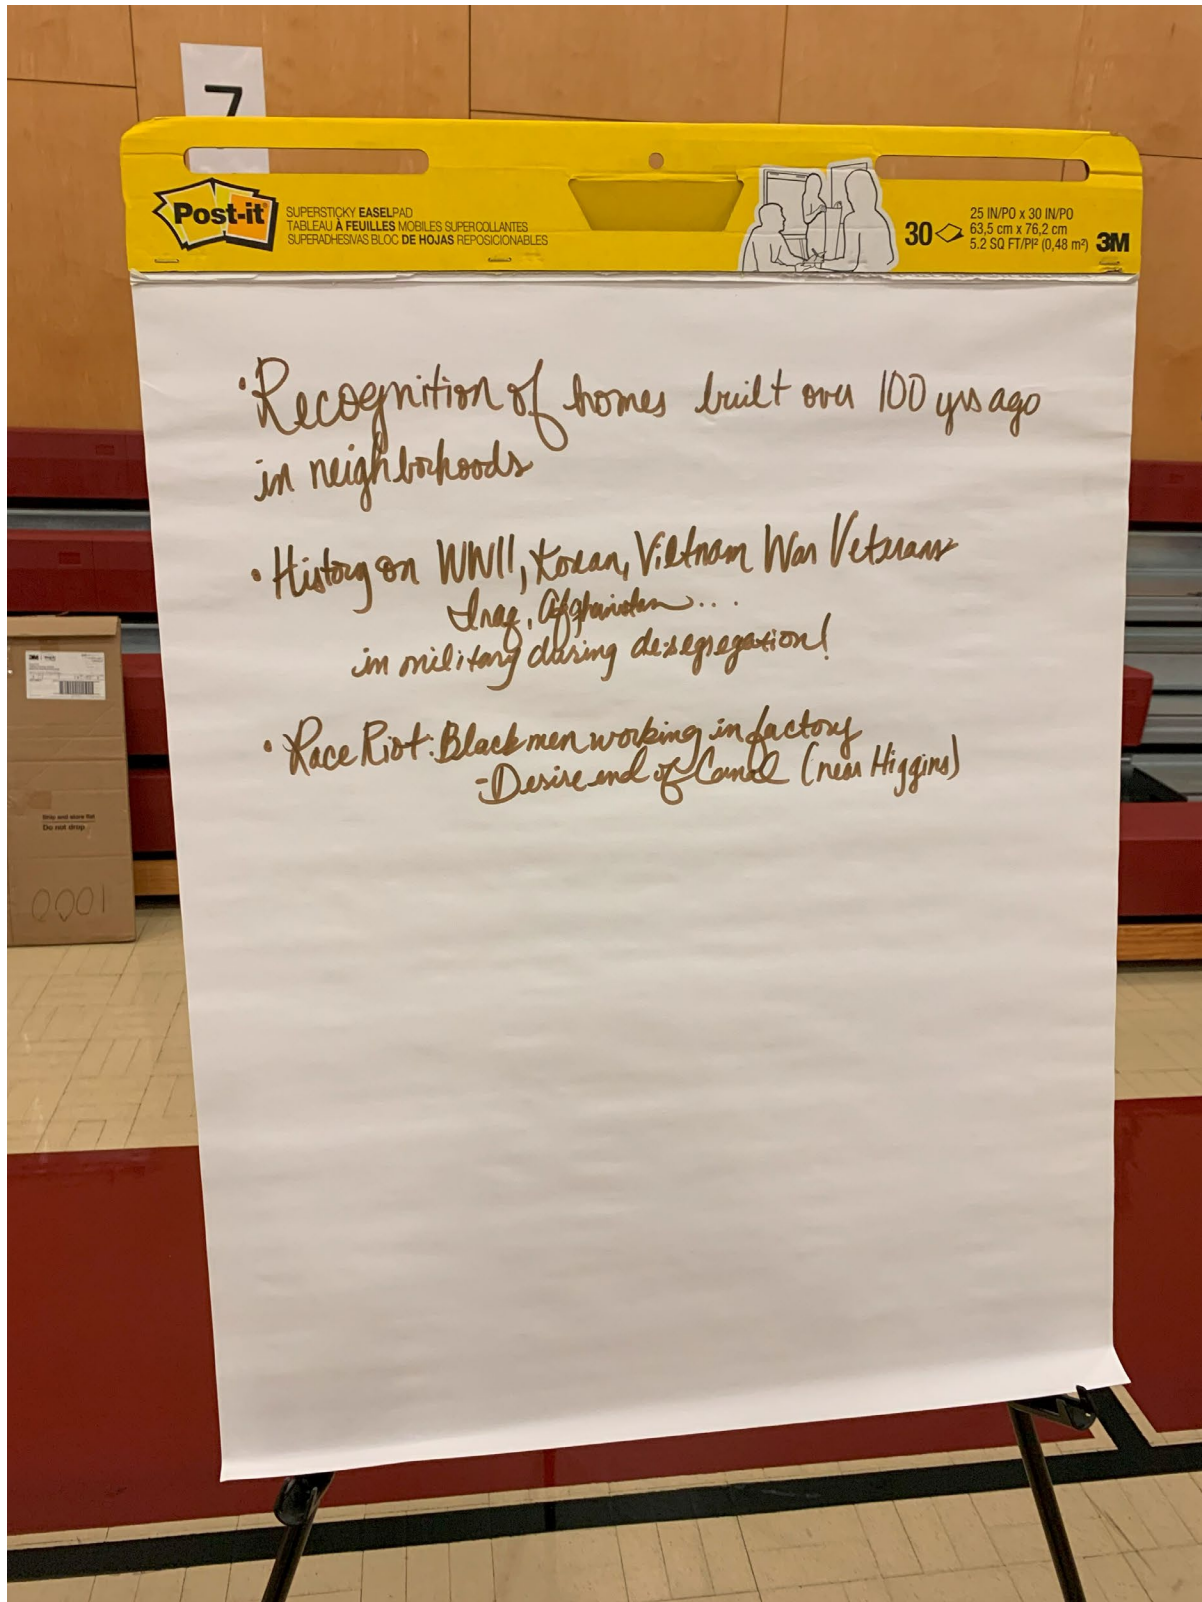 7
Post-it
SUPERSTICKY EASELPAD
TABLEAU À FEUILLES MOBILES SUPERCOLLANTES
SUPERADHESIVAS BLOC DE HOJAS REPOSICIONABLES
30
25 IN/PO x 30 IN/PO
63,5 cm x 76,2 cm
5.2 SQ FT/PI² (0,48 m²)
3M
• Recognition of homes built over 100 yrs ago
in neighborhoods
• History on WWII, Korean, Vietnam War Veterans
Iraq, Afghanistan...
in military during desegregation!
• Race Riot: Black men working in factory
- Desire end of Canal (near Higgins)
3M
Ship and store flat
Do not drop
0001